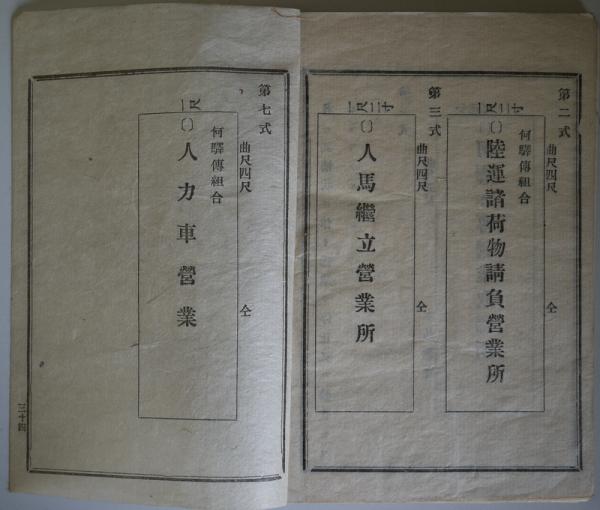 第二式
曲尺四尺 仝
一尺二寸
何驛傳組合
〔〕陸運諸荷物請負營業所
第三式
曲尺四尺 仝
一尺二寸
〔〕人馬繼立營業所
第七式
曲尺四尺 仝
一尺
何驛傳組合
〔〕人力車營業
三十四